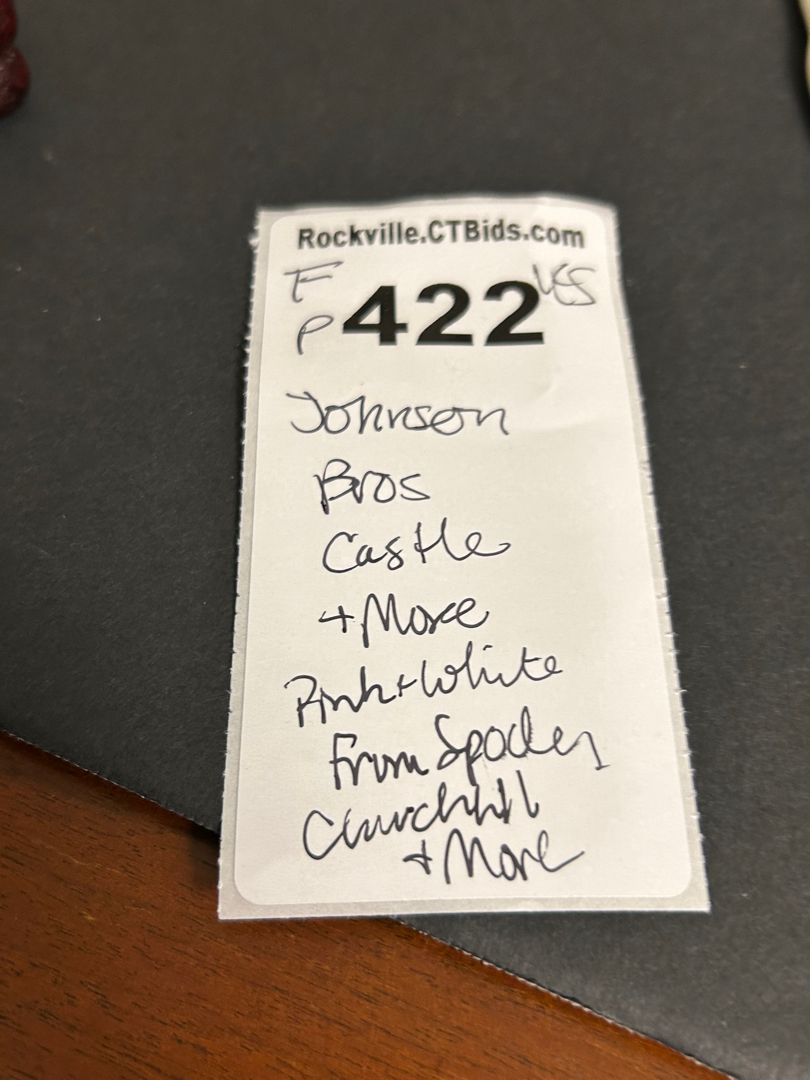 Rockville.CTBids.com
F
P 422 VES
Johnson
Bros
Castle
+ More
Pink + White
From Spode,
Churchill
+ More